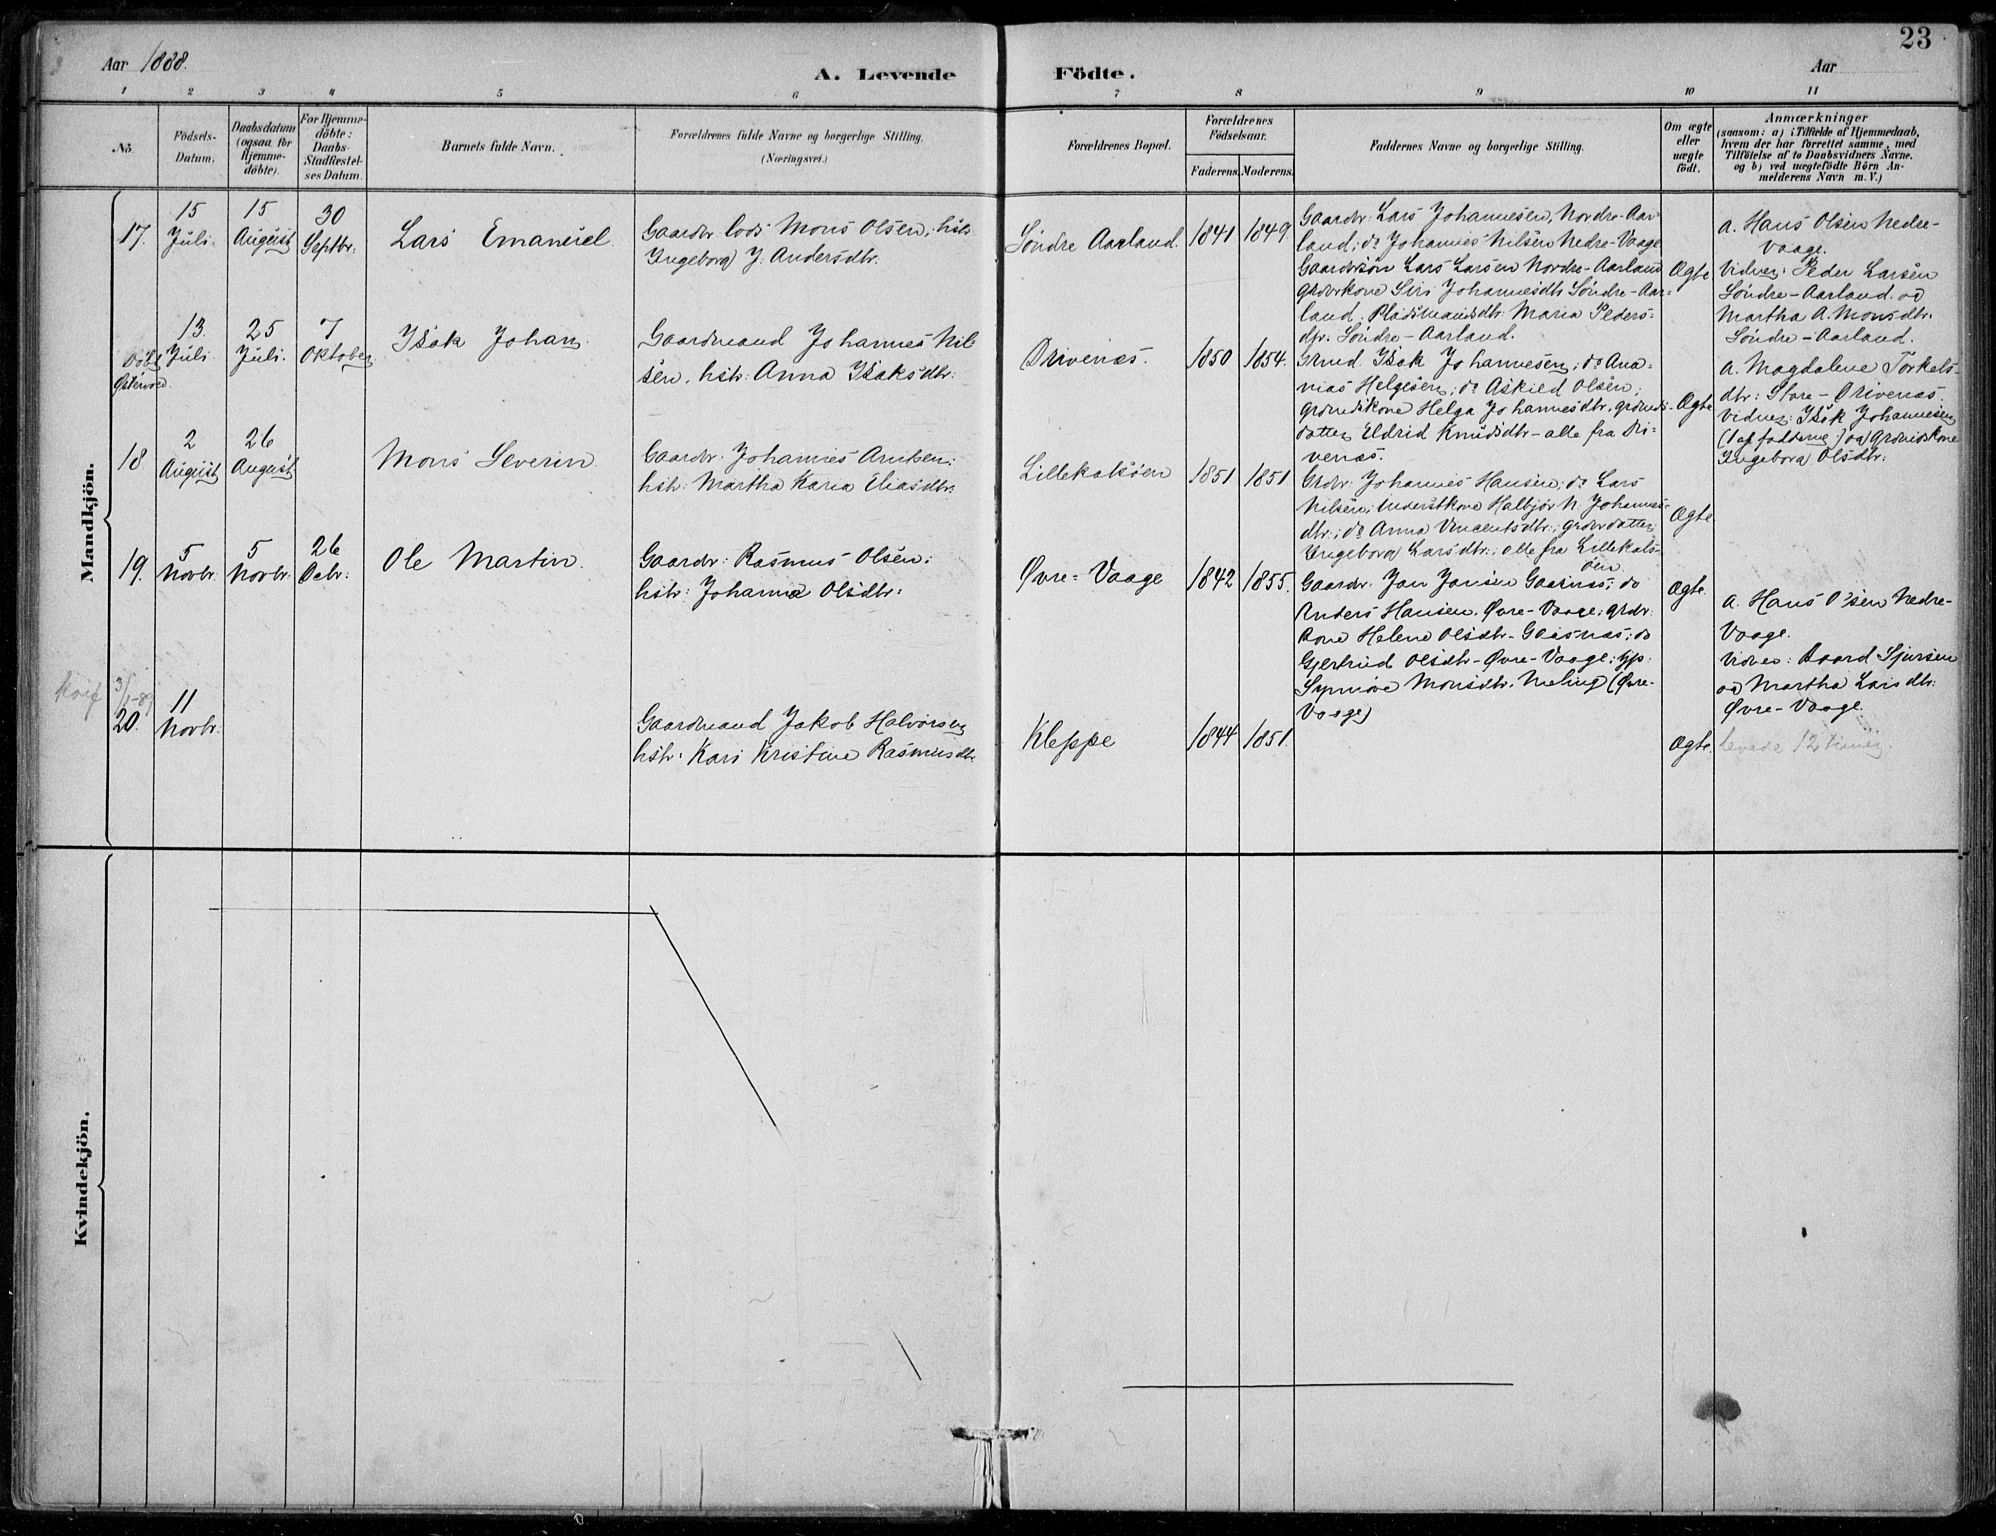 23
Aar 1888.
A. Levende Födte.
Aar
1 2 3 4 5 6 7 8 9 10 11
No.
Födsels-
Datum.
Daabsdatum
(ogsaa for
Hjemme-
döbte).
For Hjemme-
döbte:
Daabs-
Stadfæstel-
ses Datum.
Barnets fulde Navn.
Forældrenes fulde Navne og borgerlige Stilling.
(Næringsvei.)
Forældrenes Bopæl.
Forældrenes
Födselsaar.
Faderens.
Moderens.
Faddernes Navne og borgerlige Stilling.
Om ægte
eller
uægte
födt.
Anmærkninger
(saasom: a) i Tilfælde af Hjemmedaab,
hvem der har forrettet samme, med
Tilföielse af to Daabsvidners Navne.
og b) ved uægtefödte Börn An-
melderens Navn m. V.)
Mandkjön.
17.
15
Juli.
15
August
30
Septbr.
Lars Emanuel
Gaardbr. lods Mons Olsen, hstr.
Ingeborg J. Andersdtr.
Søndre Aarland.
1841
1849
Gaardbr. Lars Johannesen, Nordre-Aar-
land; do Johannes Nilsen Nedre-Vaage
Gaardbrsøn Lars Larsen Nordre-Aarland
grdbrkone Siri Johannesdtr Søndre-Aar-
land, Pladsmandsdtr. Maria Peders-
dtr. Søndre-Aarland.
Ægte
a. Hans Olsen Nedre-
Vaage.
Vidner: Peder Larsen
Søndre-Aarland. og
Martha A. Monsdtr.
Søndre-Aarland.
Døbt
Østervold.
13.
Juli
25
Juli.
7
Oktober
Isak Johan
Gaardmand Johannes Nil-
sen, hstr. Anna Isaksdtr.
Drivenæs.
1850
1854.
Grmd. Isak Johannesen; do Ana-
nias Helgesen; do Askild Olsen;
grdmdskone Helga Johannesdtr, grdmds-
datter Eldrid Knudsdtr - alle fra Dri-
venæs.
Ægte
a. Magdalene Torkels-
dtr: Store-Drivenæs.
Vidner: Isak Johannesen
(1 af fadderne) og grdmdskone
Ingeborg Olsdtr.
18
2
August
26
August
Mons Severin
Gaardbr. Johannes Arntsen;
hstr: Martha Karia Eliasdtr.
Lillekalsøen
1851
1851
Grdbr. Johannes Hansen; do Lars
Nilsen; Inderstkone Halbjør N. Johannes-
dtr.; do Anna Vincentsdtr.; grdbrdatter
Ingeborg Larsdtr.; alle fra Lillekals-
øen
Ægte
19.
5
Novbr.
5
Novbr.
26
Decbr:
Ole Martin.
Gaardbr. Rasmus Olsen;
hstr: Johanna Olsdtr.
Øvre-Vaage
1842
1855.
Gaardbr. Jan Jansen Gaasnæs; do
Anders Hansen, Øvre-Vaage; grdbr.
kone Helene Olsdtr-Gaasnæs; do
Gjertrud Olsdtr-Øvre-Vaage; tjp.
Synnøve Monsdtr. Meling (Øvre-
Vaage)
Ægte.
a. Hans Olsen Nedre-
Vaage.
Vidner: Baard Sjursen
og Martha Larsdtr.
Øvre-Vaage.
3/1-89
20.
11
Novbr.
Gaardmand Jakob Halvorsen
hstr. Kari Kristine Rasmusdtr.
Kleppe
1844
1851.
Ægte.
levede 12 timer.
Kvindekjön.